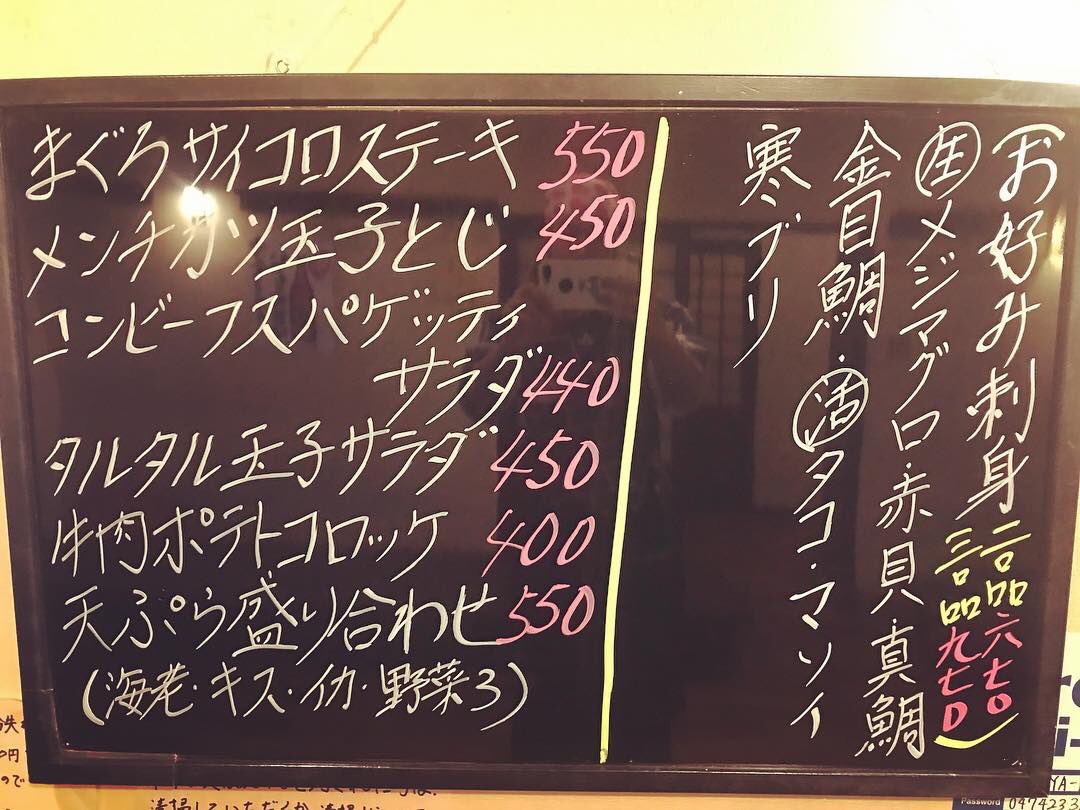 お好み刺身 二品六七〇
三品九七〇
㊤メジマグロ・赤貝・真鯛
金目鯛・㊋タコ・マソイ
寒ブリ
まぐろサイコロステーキ 550
メンチカツ玉子とじ 450
コンビーフスパゲッティ
サラダ 440
タルタル玉子サラダ 450
牛肉ポテトコロッケ 400
天ぷら盛り合わせ 550
(海老・キス・イカ・野菜3)
Password 0474233